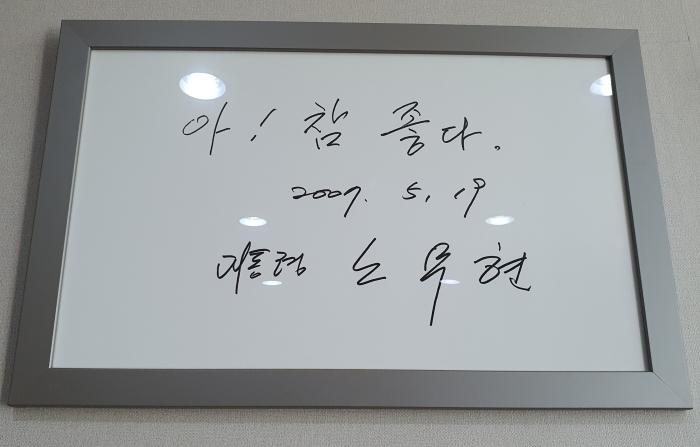 아! 참 좋다.
2007. 5. 19
대통령 노무현